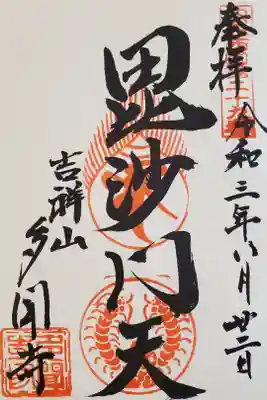 奉拝
令和三年八月廿二日
毘沙门天
吉祥山
多聞寺